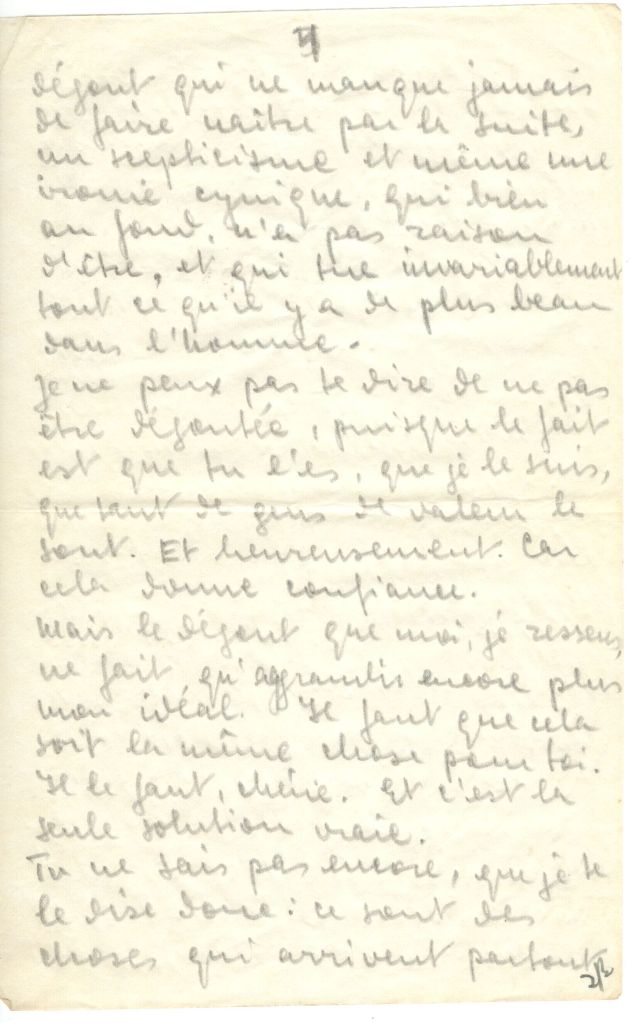 dégout qui ne manque jamais
de faire naître par la suite,
un scepticisme et même une
ironie cynique, qui bien
au fond, n'a pas raison
d'être, et qui tue invariablement
tout ce qu'il y a de plus beau
dans l'homme.
Je ne peux pas te dire de ne pas
être dégoutée, puisque le fait
est que tu l'es, que je le suis,
que tant de gens de valeur le
sont. Et heureusement. Car
cela donne confiance.
Mais le dégout que moi, je ressens,
ne fait qu'aggrandir encore plus
mon idéal. Il faut que cela
soit la même chose pour toi.
Il le faut, chérie. Et c'est la
seule solution vraie.
Tu ne sais pas encore, que je te
le dise donc: ce sont des
choses qui arrivent partout